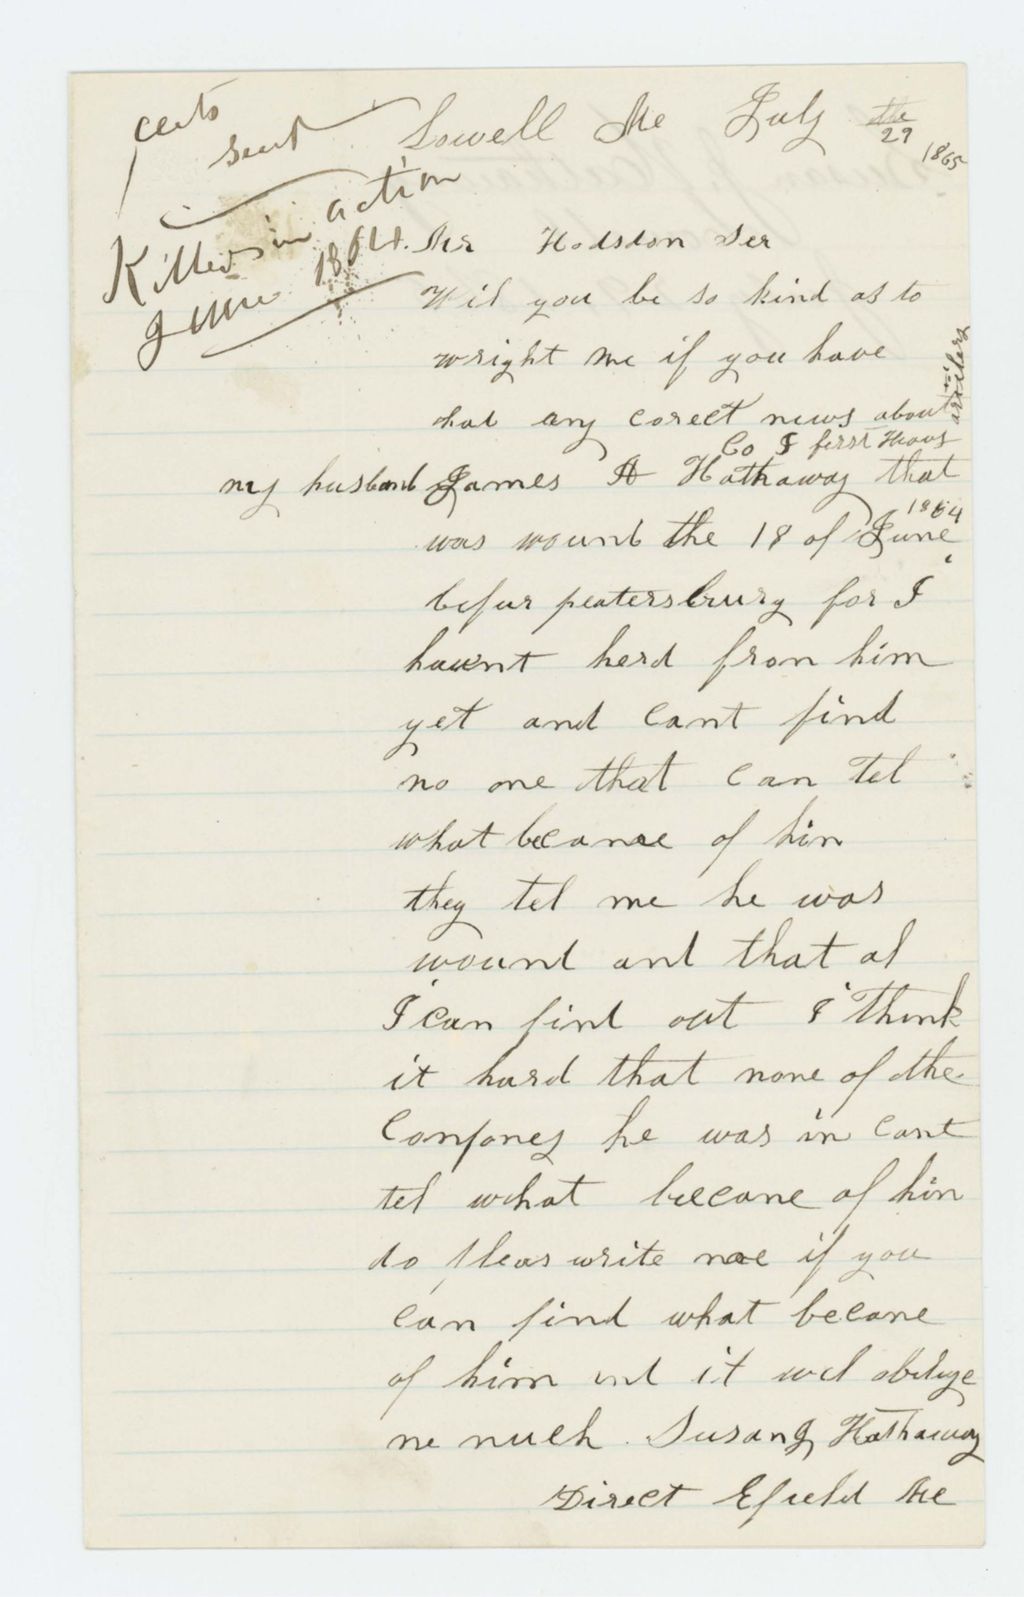 certs
sent
Killed in action
June 1864.
Lowell Me July the 29 1865
Mr Hodsdon Ser
Wil you be so kind as to
wright me if you have
had any corect news about
Co I first Heavy artilery
my husband James H Hathaway that
was wound the 18 of June 1864
befur peatersburg for I
haunt herd from him
yet and cant find
no one that can tel
what became of him
they tel me he was
wound and that al
I can find out I think
it hard that none of the
Conpaney he was in cant
tel what became of him
do pleas write me if you
can find what became
of him and it wil oblige
me much Susan J Hathaway
Direct Efield Me